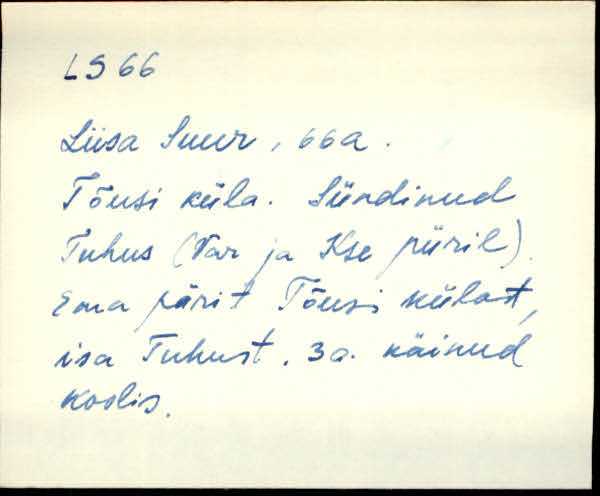 LS 66
Liisa Suur, 66a.
Tõusi küla. Sündinud
Tuhus (Var ja Kse piiril)
Ema pärit Tõusi külast,
isa Tuhust. 3a. käinud
koolis.